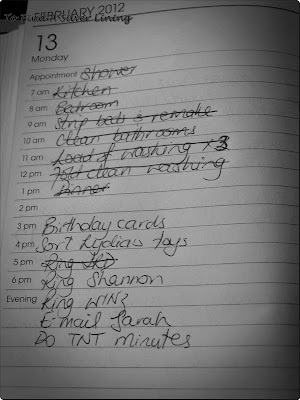 Silver Lining
FEBRUARY 2012
13
Monday
Appointment Shower
7 am Kitchen
8 am Bedroom
9 am Strip beds & remake
10 am Clean bathrooms
11 am Load of washing x3
12 pm Fold clean washing
1 pm Dinner
2 pm
3 pm Birthday cards
4 pm Sort Lydia's toys
5 pm Ring
6 pm Ring Shannon
Evening Ring WINZ
E-mail Sarah
Do TNT minutes